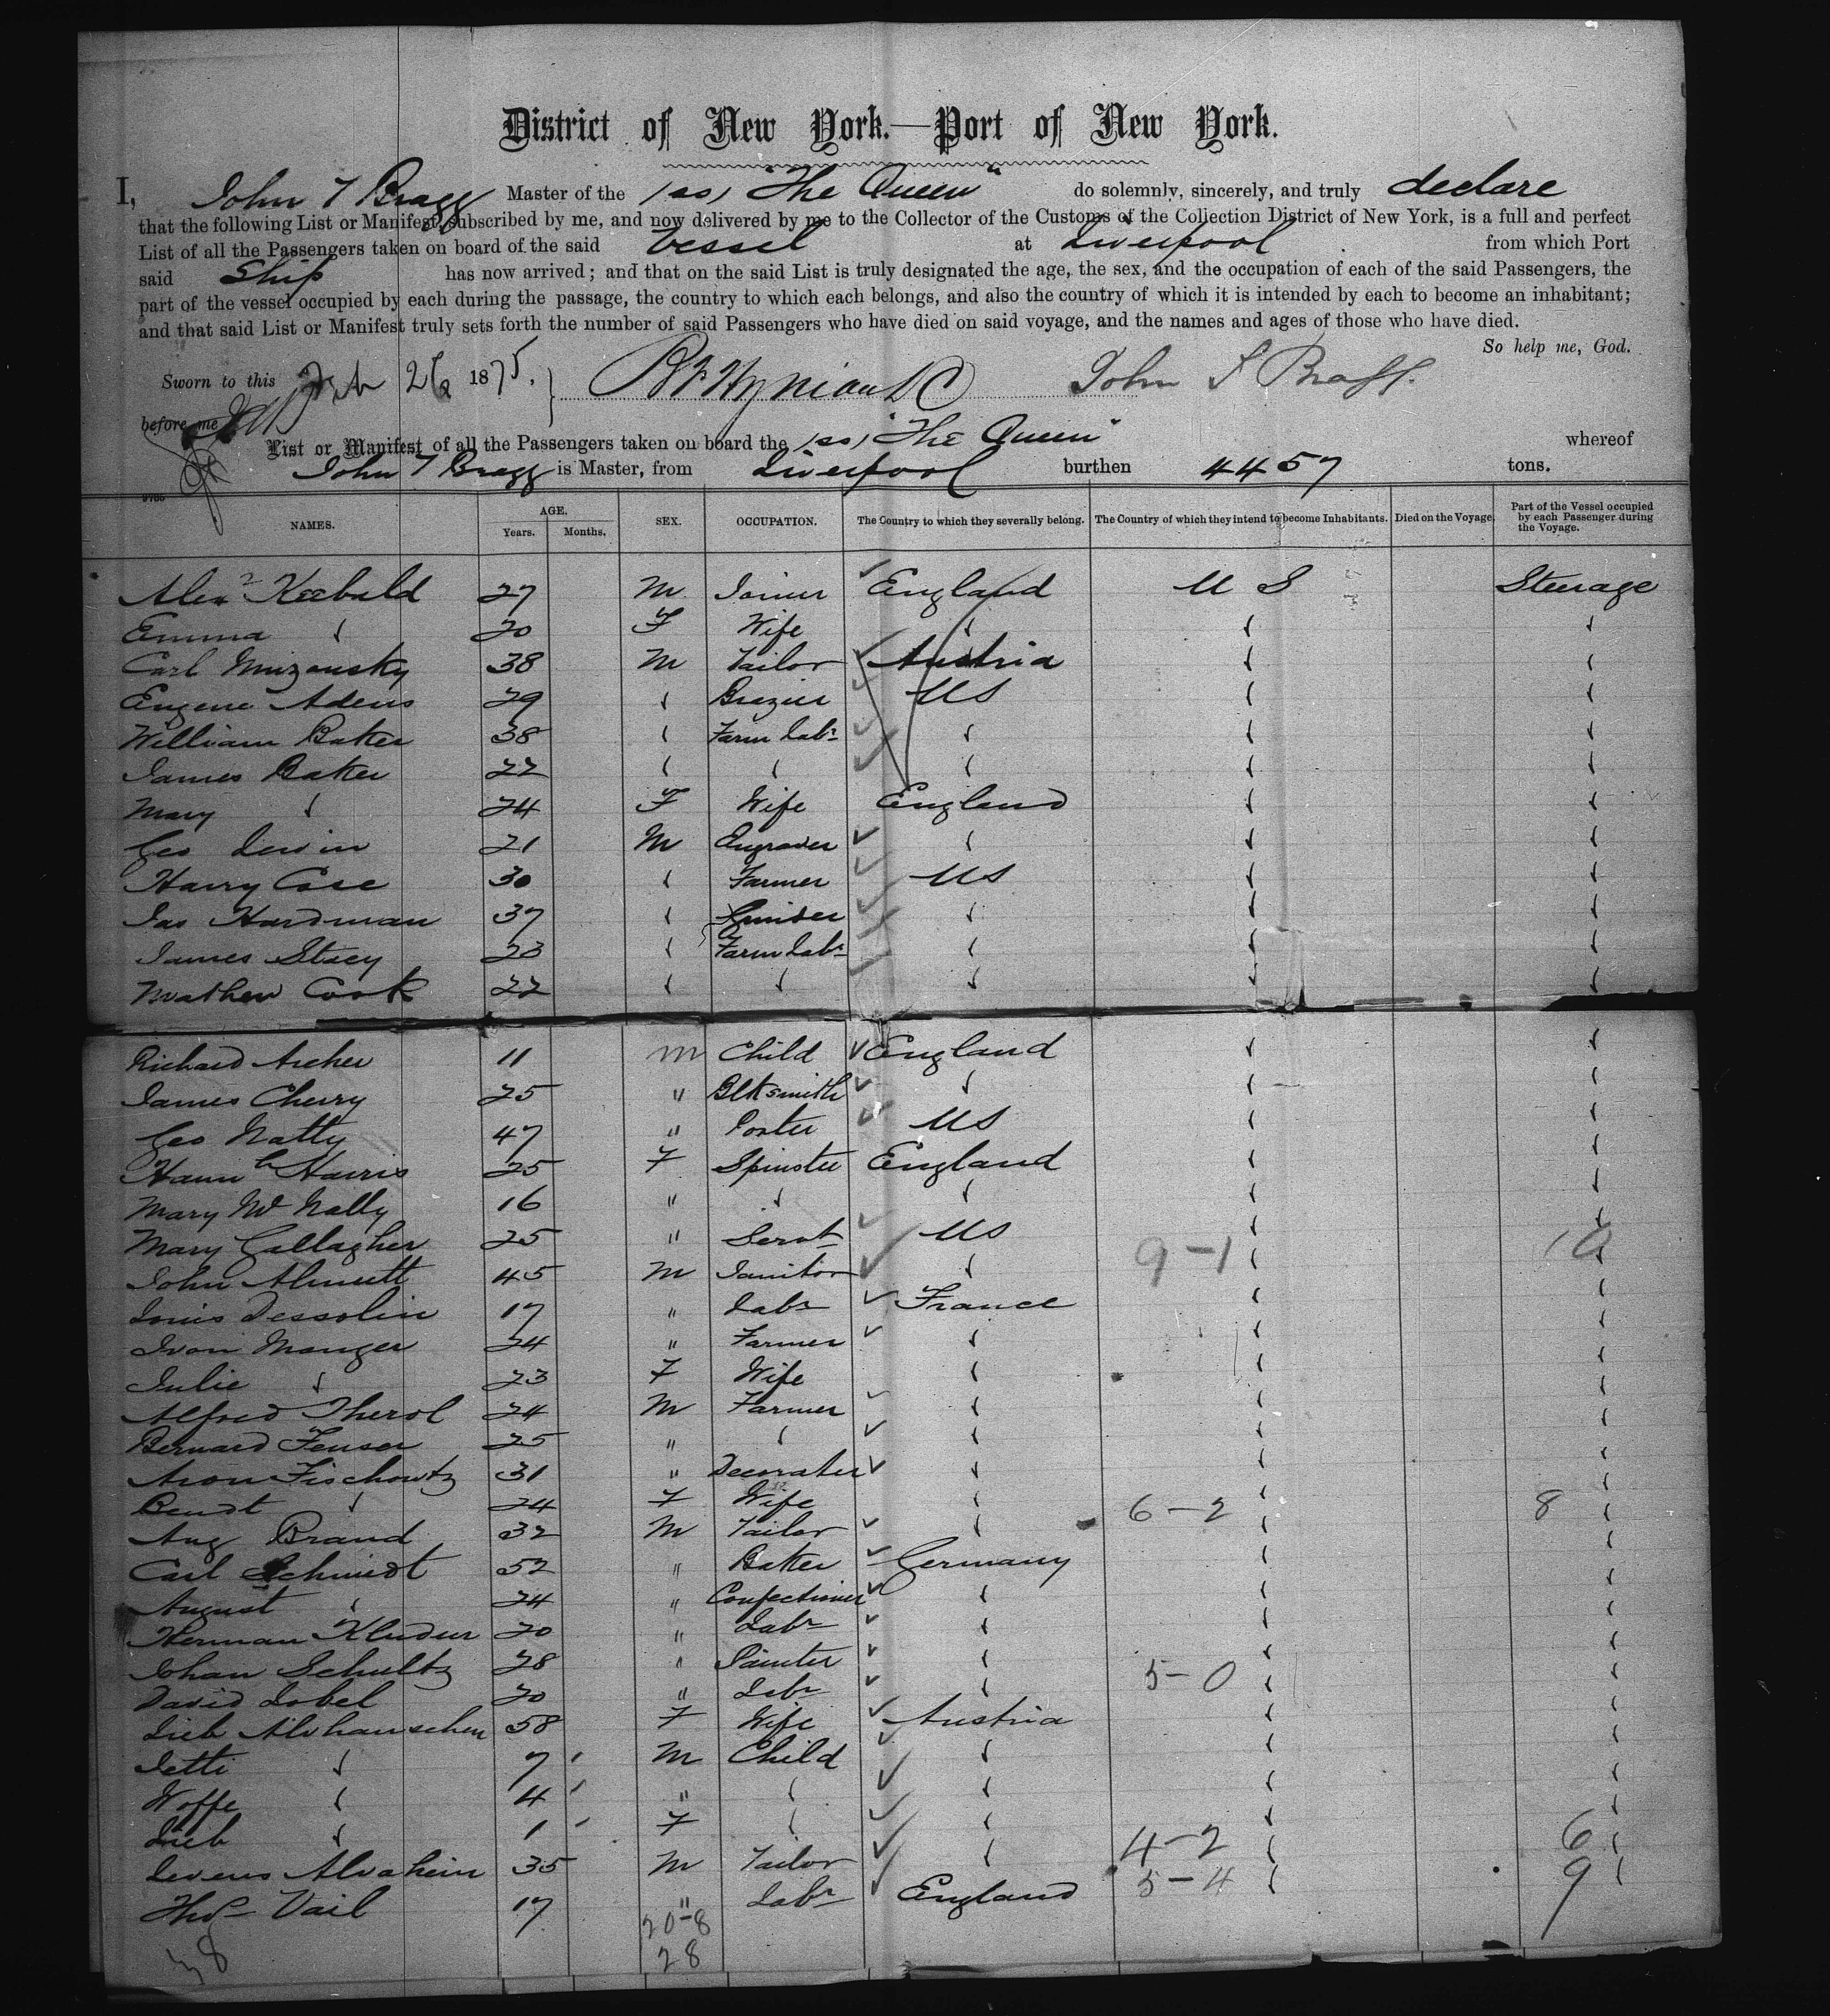 District of New York.—Port of New York.
I, John T Bragg Master of the (ss) "The Queen" do solemnly, sincerely, and truly declare
that the following List or Manifest, subscribed by me, and now delivered by me to the Collector of the Customs of the Collection District of New York, is a full and perfect
List of all the Passengers taken on board of the said Vessel at Liverpool from which Port
said Ship has now arrived; and that on the said List is truly designated the age, the sex, and the occupation of each of the said Passengers, the
part of the vessel occupied by each during the passage, the country to which each belongs, and also the country of which it is intended by each to become an inhabitant;
and that said List or Manifest truly sets forth the number of said Passengers who have died on said voyage, and the names and ages of those who have died.
So help me, God.
Sworn to this Feb 26 1875. John T Bragg.
before me
List or Manifest of all the Passengers taken on board the (ss) "The Queen" whereof
John T Bragg is Master, from Liverpool burthen 4457 tons.
NAMES. AGE. Years. Months. SEX. OCCUPATION. The Country to which they severally belong. The Country of which they intend to become Inhabitants. Died on the Voyage. Part of the Vessel occupied by each Passenger during the Voyage.
Alexr Keebald 27 M Joiner England U S Steerage
Emma " 20 F Wife " " "
Carl Muzansky 38 M Tailor Austria " "
Eugene Adens 29 " Brazier US " "
William Baker 38 " Farm Labr " " "
James Baker 22 " " " " "
Mary " 24 F Wife England " "
Geo Lewin 21 M Engraver " " "
Harry Case 30 " Farmer US " "
Jas Hardman 37 " " " "
James Stacy 23 " Farm Labr " " "
Mathew Cook 22 " " " " "
Richard Archer 11 M Child England " "
James Cherry 25 " Blksmith " " "
Geo Natty 47 " Porter US " "
Hannh Harris 25 F Spinster England " "
Mary McNally 16 " " " " "
Mary Gallagher 25 " Servt US " "
John Almutt 45 M Janitor " 9-1 " 10 "
Louis Dessolin 17 " Labr France " "
Ivon Manger 24 " Farmer " " "
Julie " 23 F Wife " " "
Alfred Therol 24 M Farmer " " "
Bernard Feuser 25 " " " " "
Aron Fischowtz 31 " Decorater " " "
Bendt " 24 F Wife " 6-2 " 8 "
Aug Brand 32 M Tailor " " "
Carl Schmidt 52 " Baker Germany " "
August " 24 " Confectioner " " "
Herman Kluder 20 " Labr " " "
Johan Schultz 28 " Painter " " "
David Lobel 20 " Labr " 5-0 " "
Lieb Alvhauschen 58 F Wife Austria " "
Jetti " 7 M Child " " "
Woffe " 4 " " " " "
Lieb " 1 F " " " "
Levens Alvahein 35 M Tailor " 4-2 " 6 "
Thos Vail 17 " Labr England 5-4 " 9 "
38 20-8
28